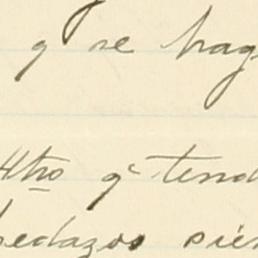 q se hag
q^e tend
pedazos sien